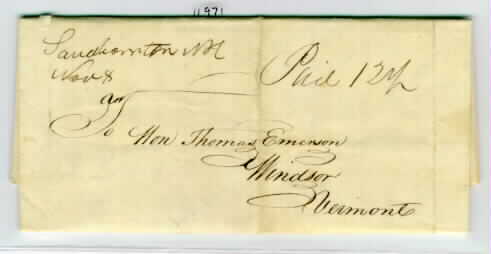 11971
Sandbornton NH
Nov 8
Paid 12½
To Hon Thomas Emerson
Windsor
Vermont